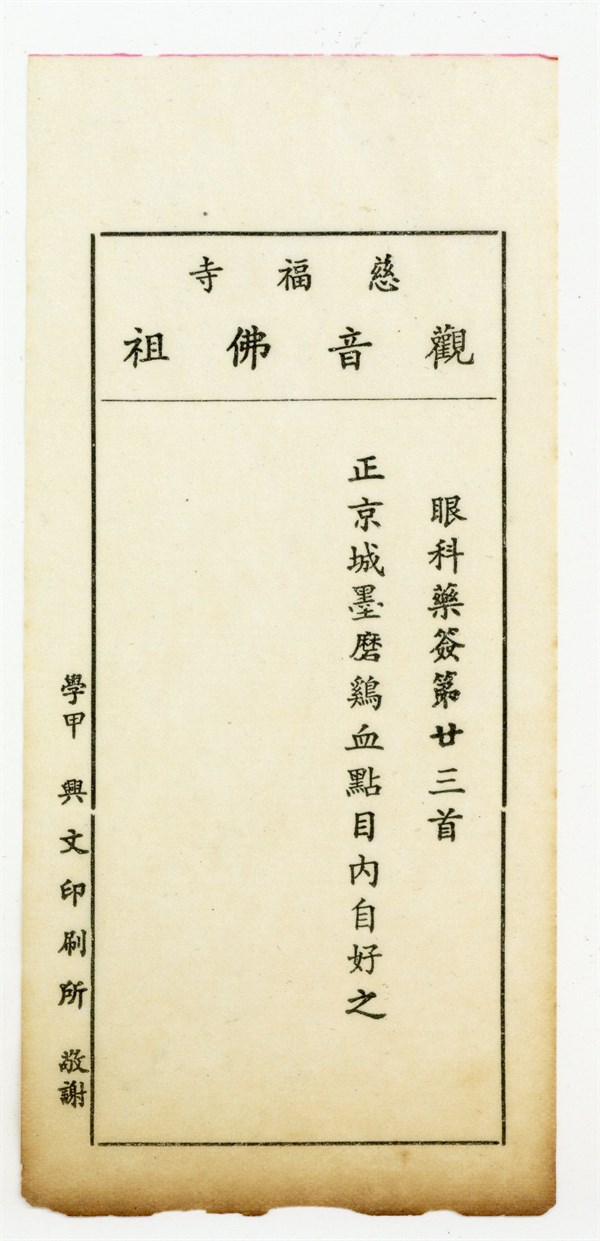 慈福寺
觀音佛祖
眼科藥簽第廿三首
正京城墨磨鷄血點目內自好之
學甲 興文印刷所 敬謝